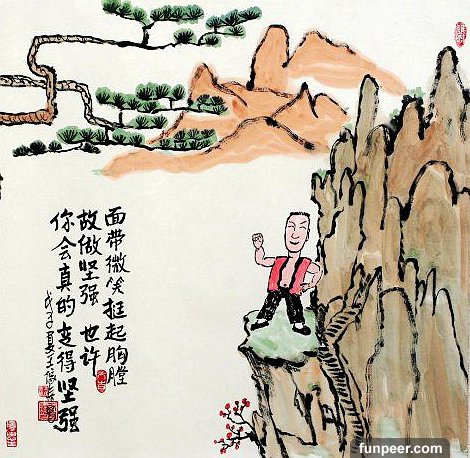 面带微笑挺起胸膛
故做坚强 也许
你会真的变得坚强
戊子夏
funpeer.com